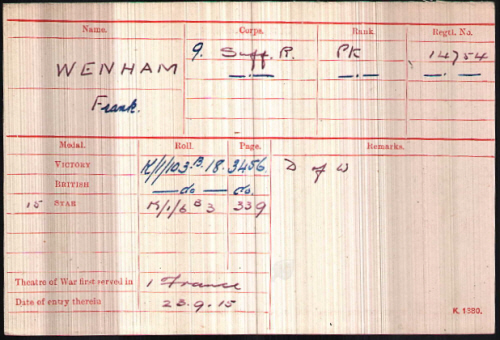 Name. Corps. Rank. Regtl. No.
WENHAM 9. Suff. R. Pte 14754
Frank. —.— —.—
Medal. Roll. Page. Remarks.
VICTORY K/1/103.B.18. 3456 D of W
BRITISH —do— do.
15 STAR K/1/6 B 3 339
Theatre of War first served in 1 France
Date of entry therein 23.9.15
K. 1380.